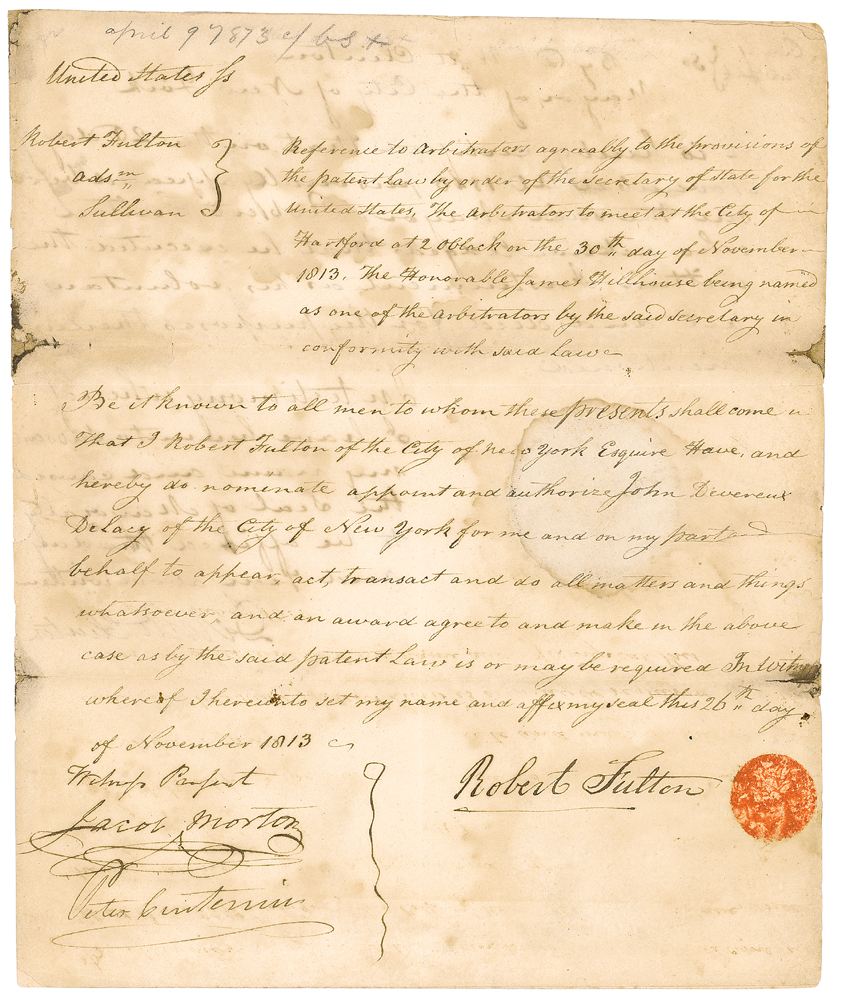 april 9 7873
United States Ss
Robert Fulton
adsm
Sullivan
Reference to Arbitrators agreeably to the provisions of
the patent Law by order of the Secretary of State for the
United States, The Arbitrators to meet at the City of
Hartford at 2 Oblock on the 30th day of November
1813. The Honorable James Hillhouse being named
as one of the Arbitrators by the said Secretary in
conformity with said Law
Be it known to all men to whom these presents shall come
That I Robert Fulton of the City of New York Esquire Have, and
hereby do nominate appoint and authorize John Devereux
Delacy of the City of New York for me and on my part
behalf to appear, act, transact and do all matters and things
whatsoever and an award agree to and make in the above
case as by the said patent Law is or may be required In Witness
whereof I hereunto set my name and affix my seal this 26th day
of November 1813
Witness Present
Jacob Morton
Peter
Robert Fulton